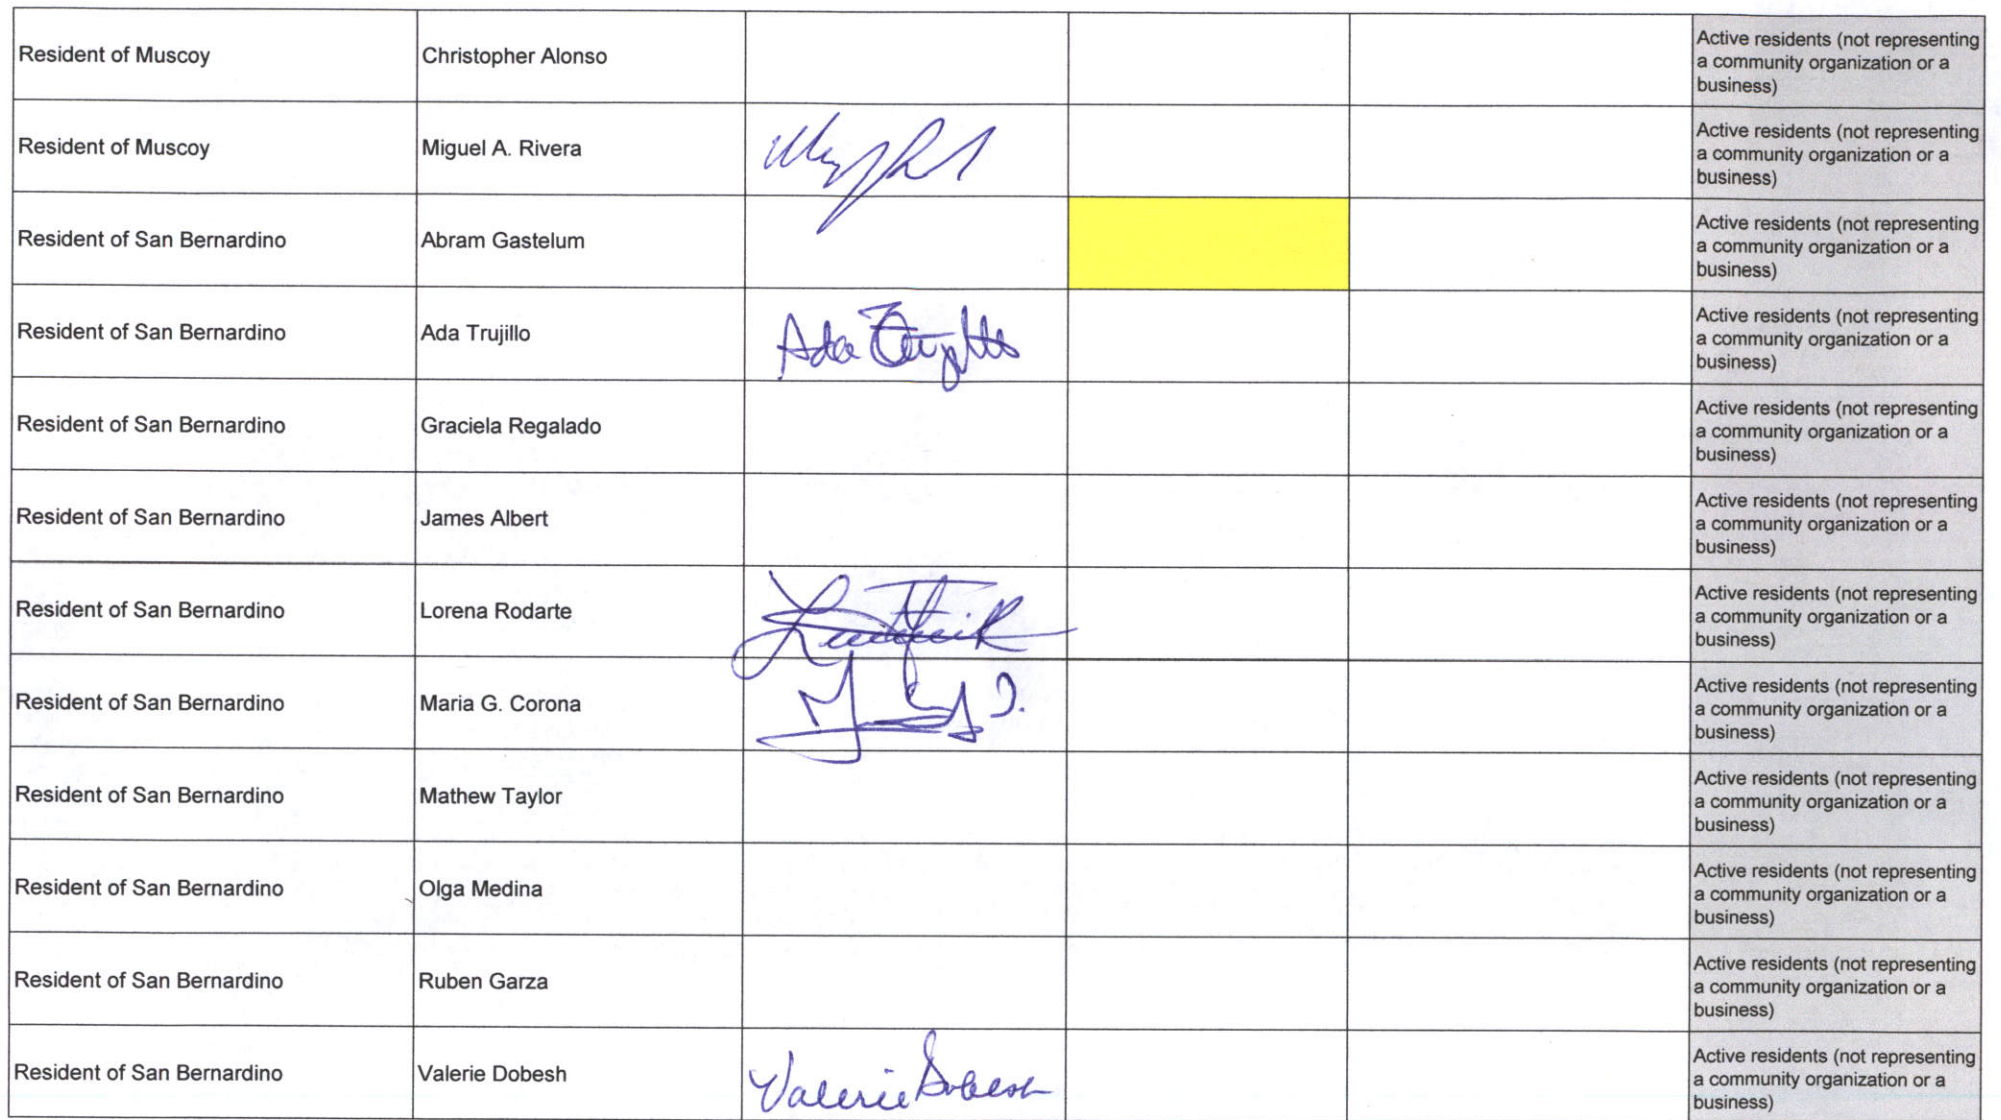 Resident of Muscoy
Christopher Alonso
Active residents (not representing
a community organization or a
business)
Resident of Muscoy
Miguel A. Rivera
Active residents (not representing
a community organization or a
business)
Resident of San Bernardino
Abram Gastelum
Active residents (not representing
a community organization or a
business)
Resident of San Bernardino
Ada Trujillo
Ada Trujillo
Active residents (not representing
a community organization or a
business)
Resident of San Bernardino
Graciela Regalado
Active residents (not representing
a community organization or a
business)
Resident of San Bernardino
James Albert
Active residents (not representing
a community organization or a
business)
Resident of San Bernardino
Lorena Rodarte
Active residents (not representing
a community organization or a
business)
Resident of San Bernardino
Maria G. Corona
Active residents (not representing
a community organization or a
business)
Resident of San Bernardino
Mathew Taylor
Active residents (not representing
a community organization or a
business)
Resident of San Bernardino
Olga Medina
Active residents (not representing
a community organization or a
business)
Resident of San Bernardino
Ruben Garza
Active residents (not representing
a community organization or a
business)
Resident of San Bernardino
Valerie Dobesh
Valerie Dobesh
Active residents (not representing
a community organization or a
business)